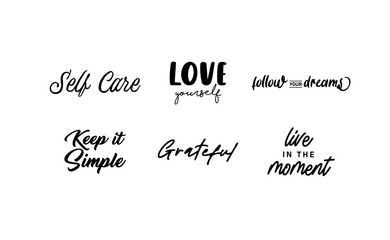 Self Care
LOVE
yourself
follow YOUR dreams
Keep it
Simple
Grateful
live
IN THE
moment